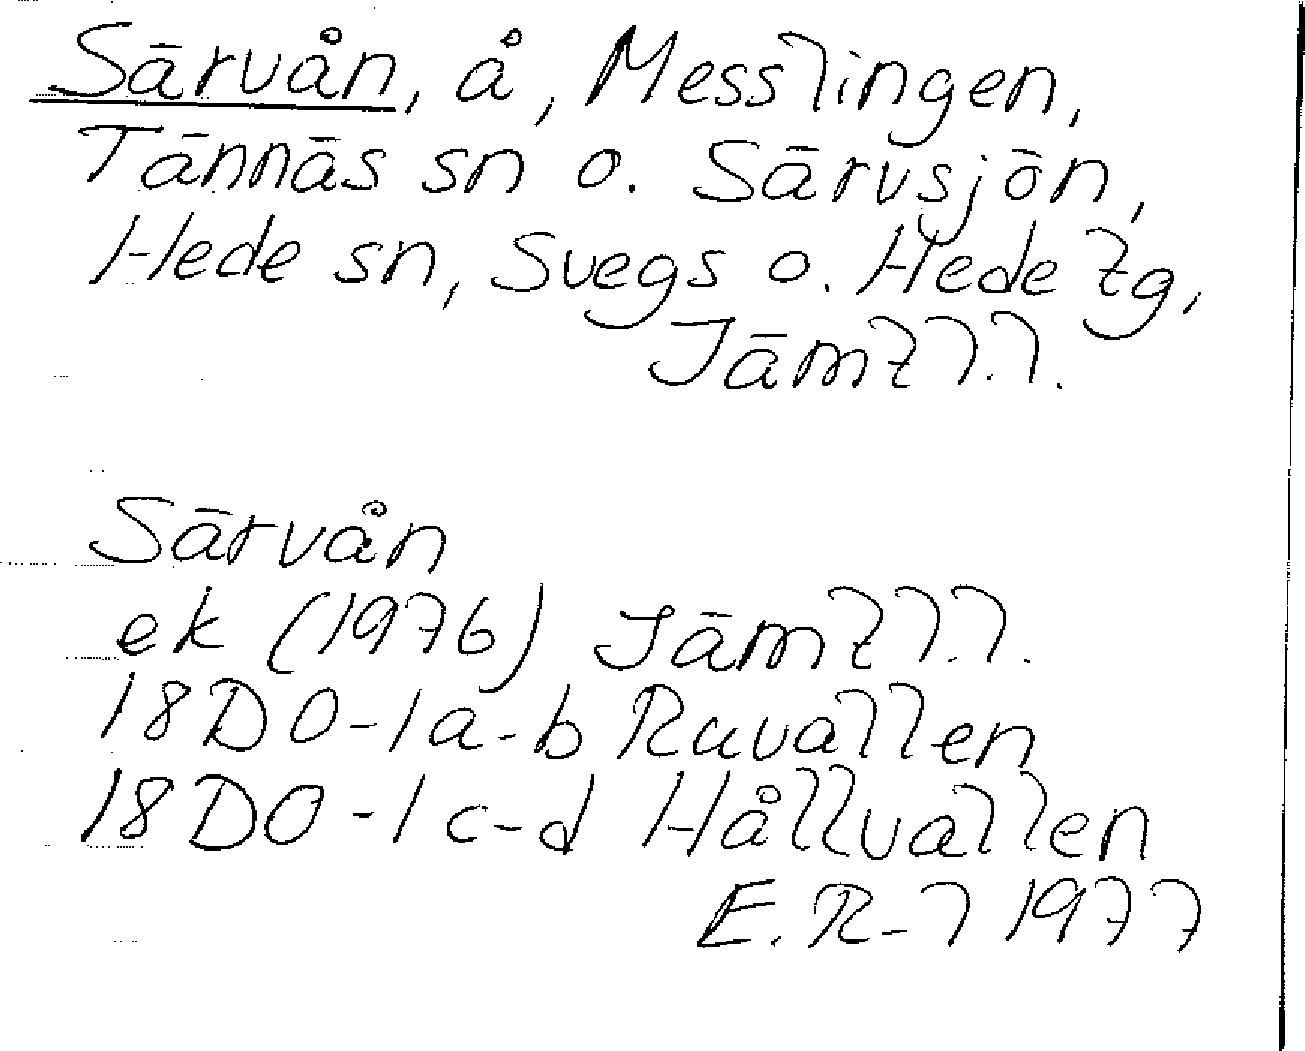 Särvån, å, Messlingen,
Tännäs sn o. Särvsjön,
Hede sn, Svegs o. Hede tg,
Jämtl.l.
Särvån
ek (1976) Jämtl.l.
18D0-1a-b Ruvallen
18D0-1c-d Hållvallen
E.R-l 1977